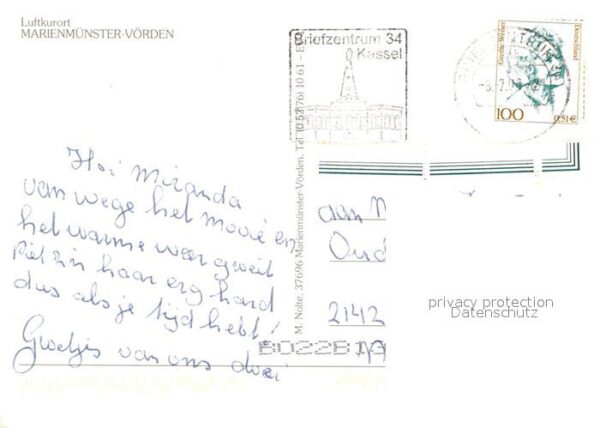 Luftkurort
MARIENMÜNSTER-VÖRDEN
Briefzentrum 34
Kassel
Goethe-Weimar
Deutschland
100
0,51€
Hoi Miranda
van wege het mooie en
het warme weer
Piet zijn haar erg hard
dus als je tijd hebt!
Groetjes van ons drei
M. Nolte, 37696 Marienmünster-Vörden, Tel. (0 52 76) 10 61
aan M
Oud
2142
privacy protection
Datenschutz